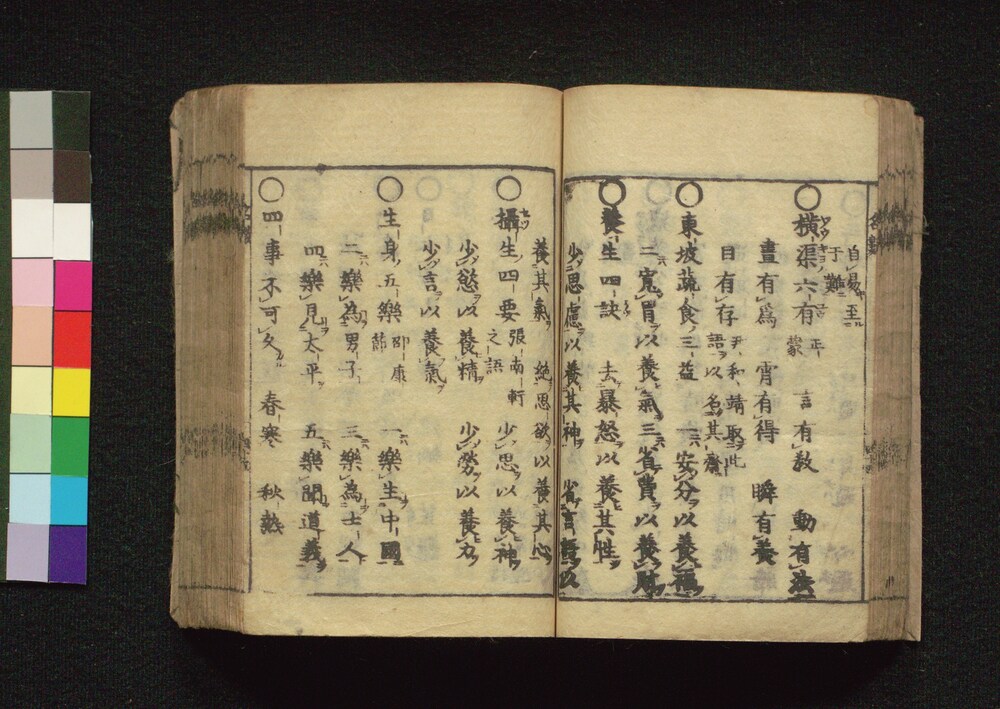 自易至
于難
横渠六有 正蒙 言有教 動有法
晝有爲 宵有得 瞬有養
目有存 尹和靖取此語以名其齋
東坡蔬食三益 一安分以養福
二寛胃以養氣 三省費以養財
養生四訣 去暴怒以養其性
少思慮以養其神 省言語以
養其氣 絶思欲以養其心
攝生四要 張南軒之語 少思以養神
少慾以養精 少勞以養力
少言以養氣
生身五樂 邵康節 一樂生中國
二樂為男子 三樂為士人
四樂見太平 五樂聞道義
四事不可久 春寒 秋熱